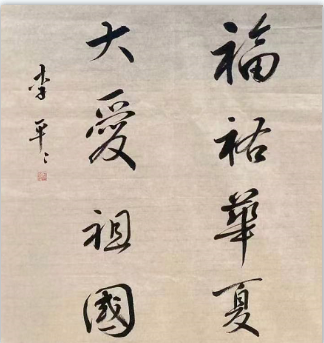 福祐華夏
大愛祖國
李平